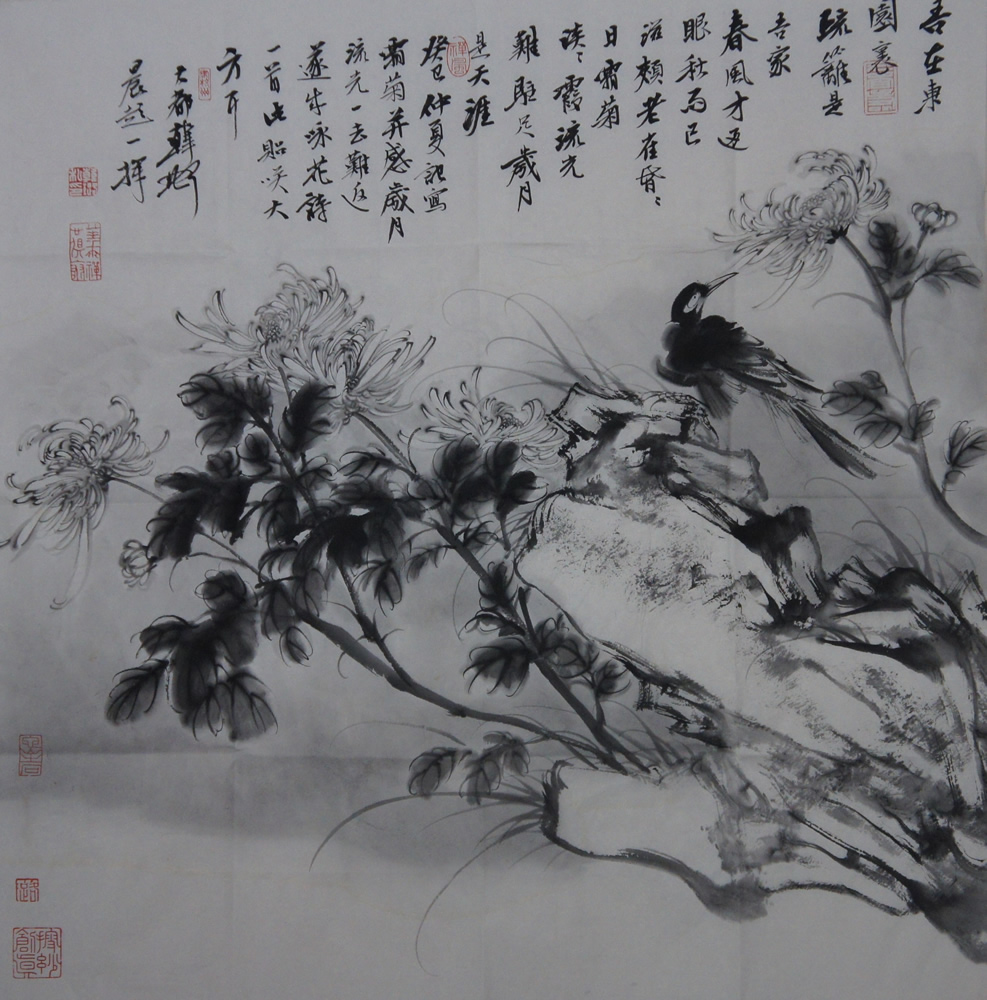 吾在東
園裏
疏籬是
吾家
春風才過
眼秋雨已
滋頰老在昏々
日霜菊
淡々霞流光
難駐足歲月
是天涯
癸巳仲夏記寫
霜菊并感歲月
流光一去難返
遂作咏花詩
一首以貽咲大
方耳
大都韓
晨題一揮